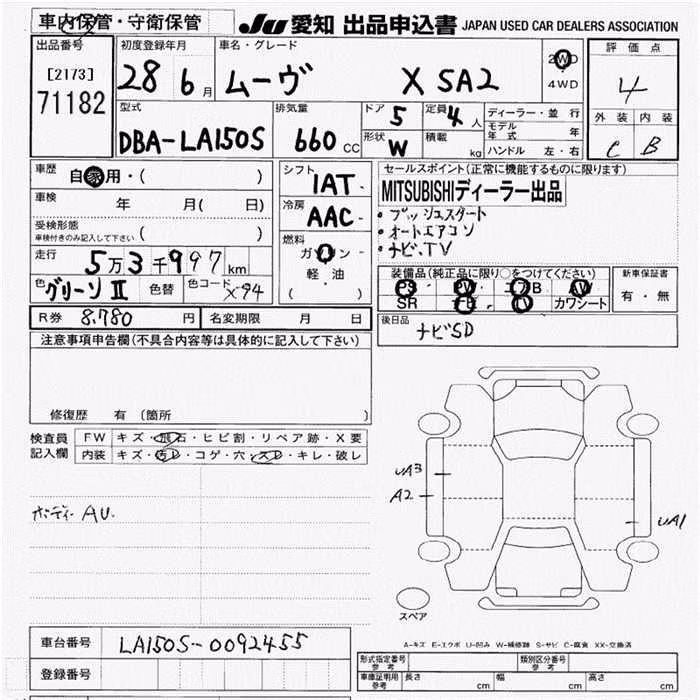 車内保管・守衛保管
JU 愛知 出品申込書 JAPAN USED CAR DEALERS ASSOCIATION
出品番号
[2173]
71182
初度登録年月
28 6月
車名・グレード
ムーヴ X SA2
2WD
4WD
評価点
4
外装 内装
C B
型式
DBA-LA150S
排気量
660 CC
ドア 5
定員 4人
形状 W
積載 kg
ディーラー・並行
モデル年式 年
ハンドル 左・右
車歴
自家用・( )
車検
年 月( 日)
受検形態
車検付きのみ記入して下さい ( )
走行
5万3千997km
色 グリーンⅡ 色替 色コード X94
シフト
1AT-
冷房
AAC-
燃料
ガソリン
軽・油
( )
セールスポイント(正常に機能するものに限ります)
MITSUBISHIディーラー出品
・プッシュスタート
・オートエアコン
・ナビ、TV
装備品(純正品に限り○をつけてください)
PS・PW・エアB・AW
SR・ナビ・TV・カワシート
新車保証書
有・無
R券 8,780 円 名変期限 月 日
後日品
ナビSD
注意事項申告欄(不具合内容等は具体的に記入して下さい)
修復歴 有 (箇所 )
検査員記入欄
FW キズ・飛石・ヒビ割・リペア跡・X要
内装 キズ・汚レ・コゲ・穴・スレ・キレ・破レ
ボディー AU.
UA3
A2
UA1
スペア
車台番号 LA150S-0092455
登録番号
A-キズ E-エクボ U-凹み W-補修跡 S-サビ C-腐食 XX-交換済
形式指定番号 参考
類別区分番号 参考
車庫証明用 参考 長さ cm 幅 cm 高さ cm